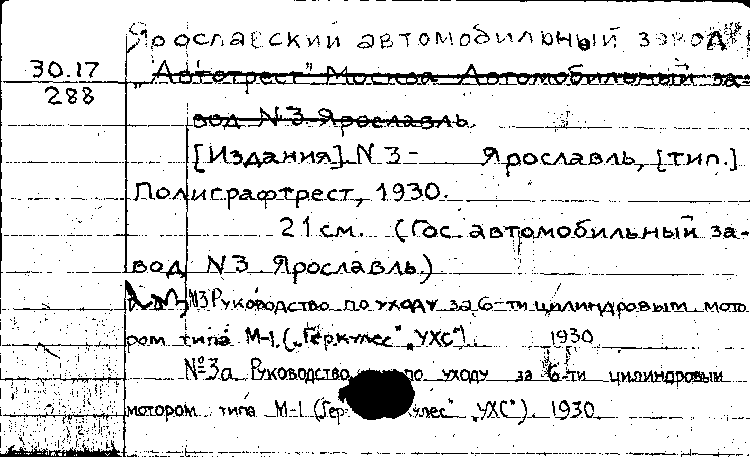 Ярославский автомобильный завод
30.17
288
„Автотрест" Москва Автомобильный за-
вод N 3 Ярославль
[Издания] N 3- Ярославль, [тип.]
Полиграфтрест, 1930.
21 см. (Гос. автомобильный за-
вод N 3 Ярославль.)
N3 Руководство по уходу за 6-ти цилиндровым мото
ром типа М-1. („Геркулес" „УХС"). 1930
№ 3а Руководство по уходу за 6-ти цилиндровым
мотором типа М-1 (Гер улес" „УХС"). 1930.